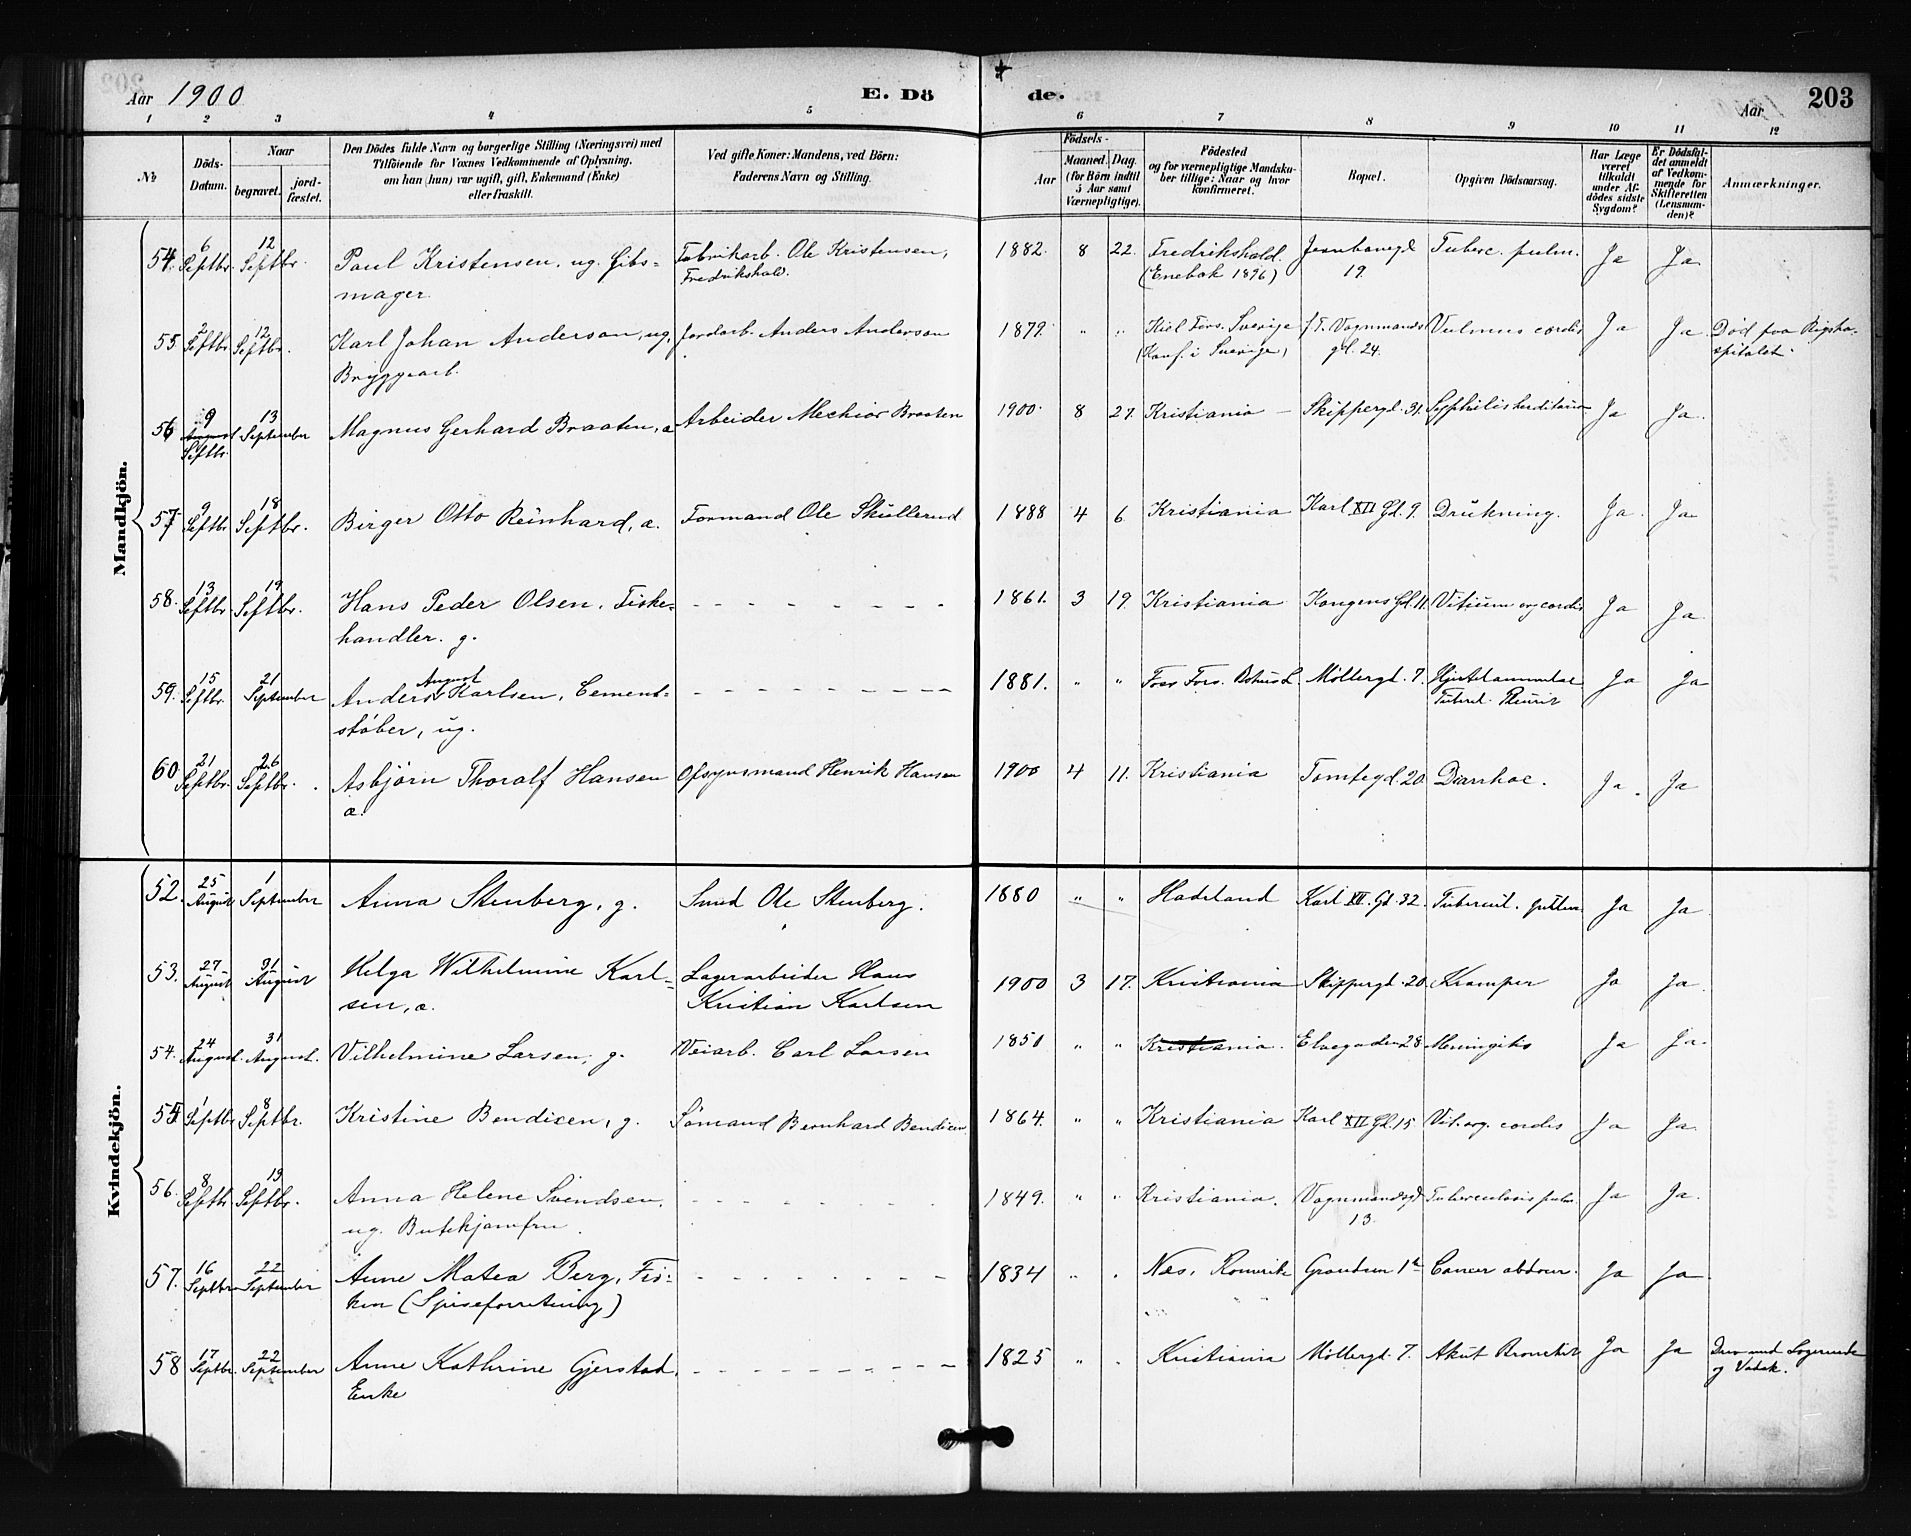 Aar 1900
E. Dö
de.
Aar
203
1 2 3 4 5 6 7 8 9 10 11 12
No
Döds-
Datum.
Naar
begravet.
jord-
fæstet.
Den Dödes fulde Navn og borgerlige Stilling (Næringsvei) med
Tilföiende for Voxnes Vedkommende af Oplysning,
om han (hun) var ugift, gift, Enkemand (Enke)
eller fraskilt.
Ved gifte Koner: Mandens, ved Börn:
Faderens Navn og Stilling.
Födsels-
Aar
Maaned. Dag.
(for Börn indtil
5 Aar samt
Værnepligtige).
Födested
og for værnepligtige Mandsku-
ber tillige: Naar og hvor
konfirmeret.
Bopæl.
Opgiven Dödsaarsag.
Har Læge
været
tilkaldt
under Af-
dödes sidste
Sygdom?
Er Dödsfal-
det anmeldt
af Vedkom-
mende for
Skifteretten
(Lensman-
den)?
Anmærkninger.
Mandkjön.
54. 6 Septbr. 12 Septbr. Paul Kristensen, ug. Gibs=
mager.
Fabrikarb. Ole Kristensen,
Fredrikshald.
1882. 8 22. Fredrikshald.
(Enebak 1896)
Jernbanegd
19.
Tuberc. pulm. Ja Ja
55 2 Septbr. 12 Septbr. Karl Johan Anderson, ug,
Bryggearb.
Jordarb. Anders Anderson
1879. " " Kiel Fors. Sverige
(Konf. i Sverige)
f. T. Vognmands
gd. 24.
Vulnus cordis Ja Ja Död paa Rigsho-
spitalet.
56 9 August Septbr. 13 September Magnus Gerhard Braaten, æ
Arbeider Mechior Braaten
1900. 8 27. Kristiania – Skippergd. 31. Syphilis hereditaria Ja Ja.
57. 9 Septbr. 18 Septbr. Birger Otto Reinhard, æ.
Formand Ole Skullerud
1888 4 6 Kristiania Karl XII Gd. 9. Drukning. Ja Ja
58. 13 Septbr. 19 Septbr. Hans Peder Olsen, Fiske=
handler. g.
1861. 3 19. Kristiania Kongens Gd. 11. Vitium org cordis Ja Ja.
59. 15 Septbr. 21 September Anders August Karlsen, Cement-
støber, ug.
1881. " " Foss Fors. Bohus L. Møllergd. 7.
Tubercl. Pleurit
Ja Ja
60 21 Septbr. 26 Septbr. Asbjørn Thoralf Hansen
æ.
Opsynsmand Henrik Hansen
1900 4 11. Kristiania Tomtegd. 20. Diarrhoe. Ja. Ja
Kvindekjön.
52. 25 August 1 September Anna Stenberg, g.
Smed Ole Stenberg.
1880 " " Hadeland Karl XII. Gd. 32. Tubercul. Ja Ja
53. 27 August 31 August Helga Wilhelmine Karl=
sen, æ.
Lagerarbeider Hans
Kristian Karlsen
1900 3 17. Kristiania Skippergd. 20. Kramper Ja Ja.
54. 24 August. 31 August. Vilhelmine Larsen, g. Veiarb. Carl Larsen
1851 " " Kristiania. Elvegaden 28 Meningitis Ja Ja.
55. 1 Septbr 8 Septbr. Kristine Bendixen, g. Sömand Bernhard Bendixen
1864. " " Kristiania Karl XII Gd. 15 Vit. org. cordis Ja Ja.
56. 8 Septbr. 13 Septbr. Anna Helene Svendsen,
ug. Butikjomfru.
1849. " " Kristiania. Vognmandsgd
13.
Tuberculosis pulm. Ja Ja.
57. 16 Septbr. 22 September Anne Matea Berg, Fis-
ken (Spiseforretning)
1834 " " Næs, Romerike Grændsen 1 Cancer abdom. Ja Ja
58 17 Septbr. 22 September Anne Kathrine Gjerstad,
Enke
1825 " " Kristiania Møllergd. 7. Akut Bronchit Ja Ja Drev med Logerende
og Vadsk.